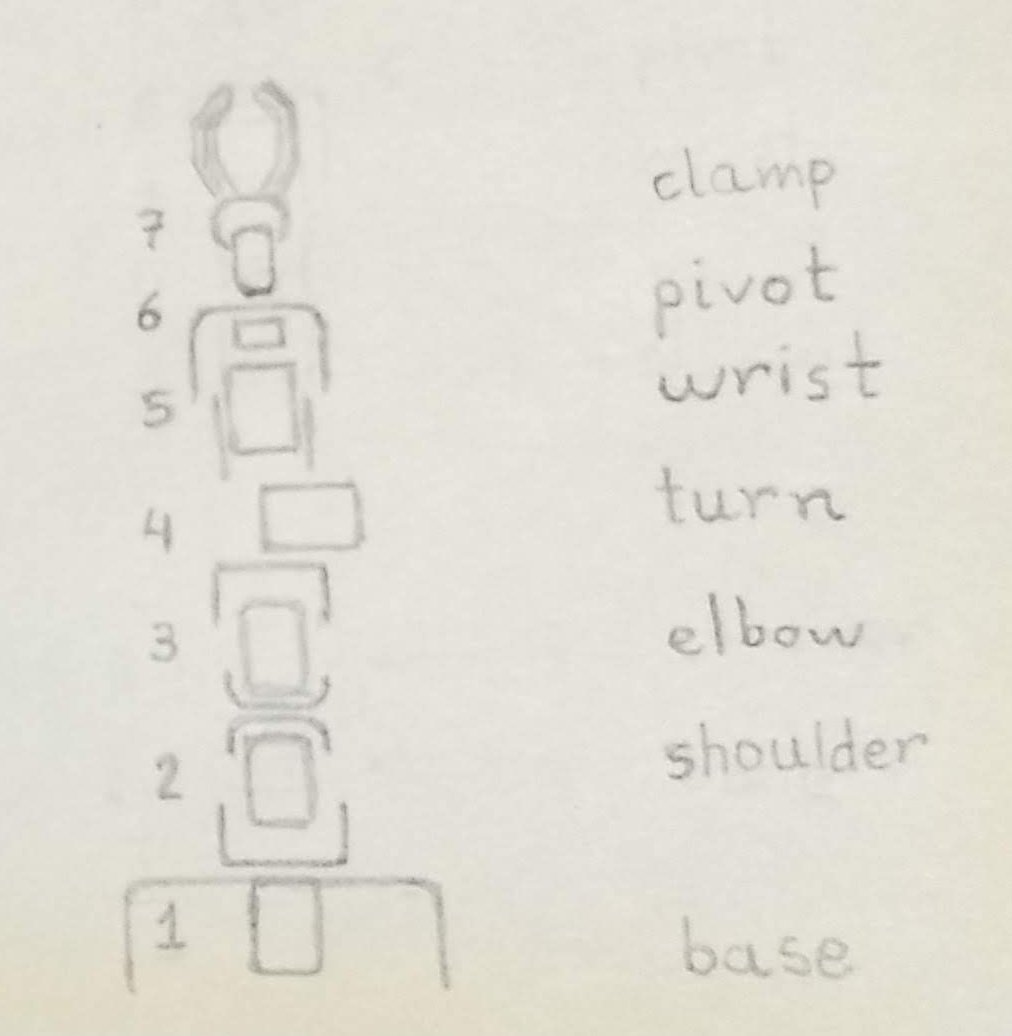 clamp
7
pivot
6
wrist
5
turn
4
elbow
3
shoulder
2
base
1